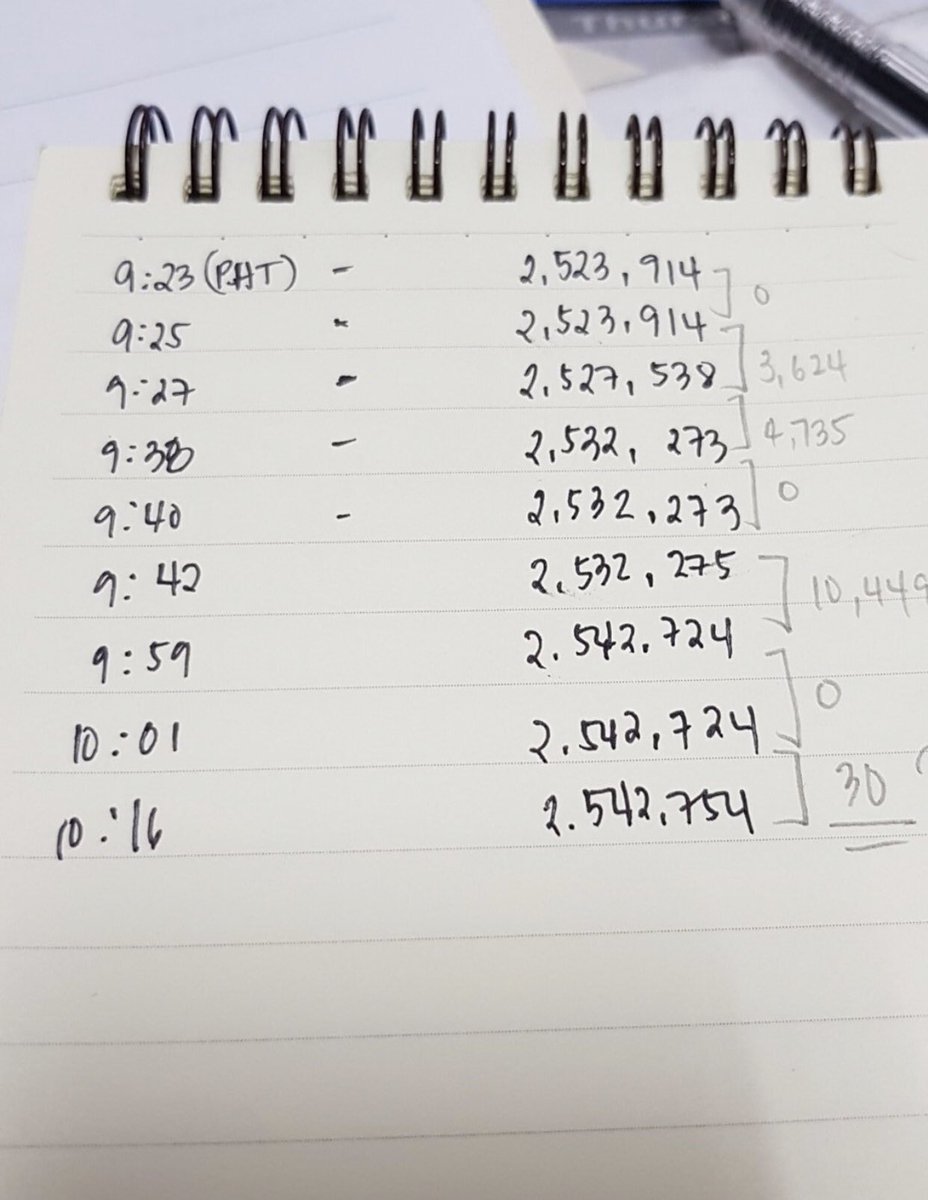 Thur
9:23 (PHT) - 2,523,914
0
9:25 - 2,523,914
3,624
9:27 - 2,527,538
4,735
9:38 - 2,532,273
0
9:40 - 2,532,273
9:42 2,532,275
10,449
9:59 2.542.724
0
10:01 2.542,724
30
10:16 2.542.754